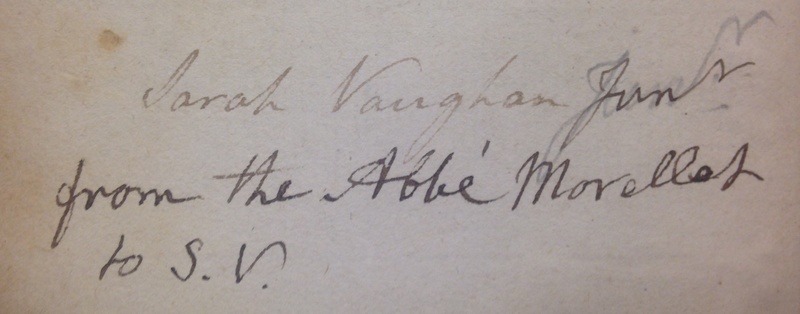 Sarah Vaughan Junr
from the Abbé Morellet
to S. V.